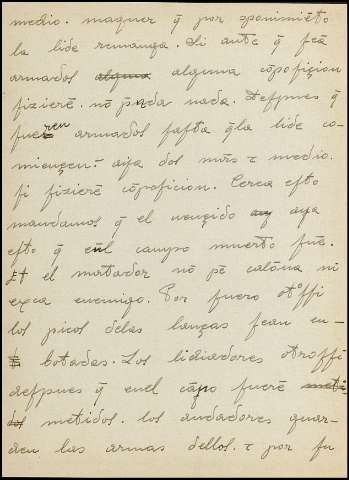 medio. maguer q̃ por auenimiẽto
la lide remanga. Si ante q̃ seã
armados alguna cõposicion
fizierẽ. nõ pnda nada. Despues q̃
fueren armados fasta q̃la lide co-
miençen. aya dos mrs τ medio.
si fizierẽ cõposicion. Cerca esto
mandamos q̃ el uençido aya
esto q̃ enl campo muerto fue.
Et el matador nõ pe calõna ni
exca enemigo. Por fuero otossi
los picos delas lanças sean en-
botadas. Los lidiadores otrossi
despues q̃ enel cãpo fuerẽ meti
dos metidos. los andadores guar-
den las armas dellos. τ por su